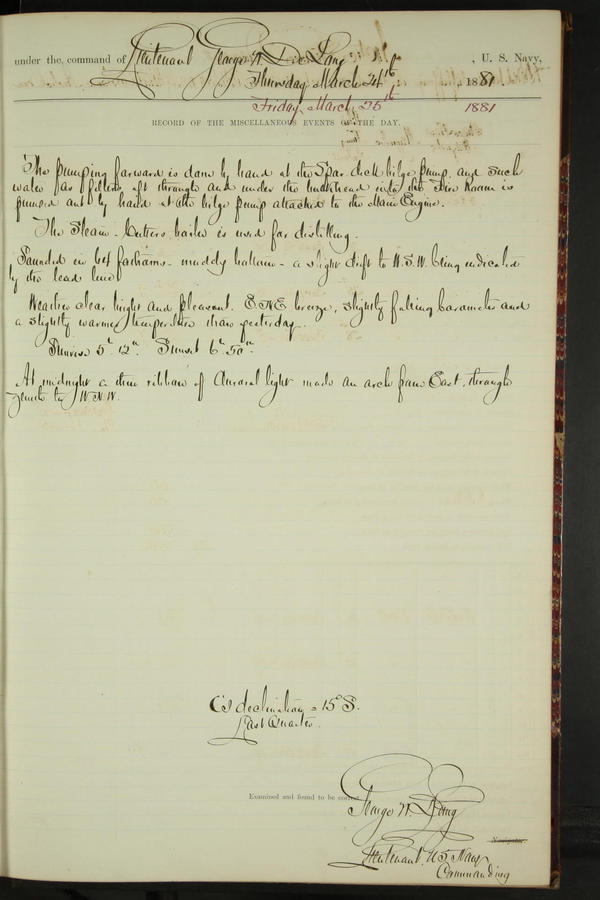 under the command of Lieutenant George W. De Long, U. S. Navy,
Thursday March 24th, 1881.
Friday March 25th 1881
RECORD OF THE MISCELLANEOUS EVENTS OF THE DAY.
The pumping forward is done by hand at the Spar deck bilge pump, and such
water as filters aft through and under the bulkhead into the Fire Room is
pumped out by hand at the bilge pump attached to the Main Engine.
The Steam-Cutters boiler is used for distilling.
Sounded in 64 fathoms - muddy bottom - a slight drift to W.S.W. being indicated
by the lead line
Weather clear bright and pleasant. ENE breeze, slightly falling barometer and
a slightly warmer temperature than yesterday.
Sunrise 5h 12m. Sunset 6h 50m.
At midnight a thin ribbon of Auroral light made an arch from East, through
Zenith to W.N.W.
☾'s declination = 15° S.
Last Quarter.
Examined and found to be correct.
George W. De Long
Navigator.
Lieutenant, U.S. Navy
Commanding